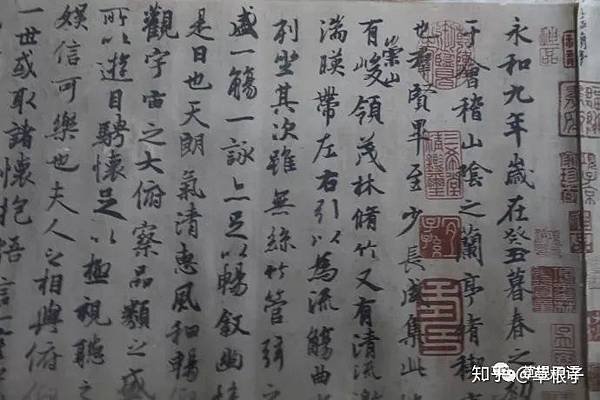 永和九年歲在癸丑暮春之初
于會稽山陰之蘭亭脩稧
也群賢畢至少長咸集此
崇山
有峻領茂林脩竹又有清流激
湍暎帶左右引以為流觴曲
列坐其次雖無絲竹管弦
盛一觴一詠亦足以暢叙幽情
是日也天朗氣清惠風和暢
觀宇宙之大俯察品類之盛
所以遊目騁懷足以極視聽之
娛信可樂也夫人之相與俯仰
一世或取諸懷抱悟言一
知乎